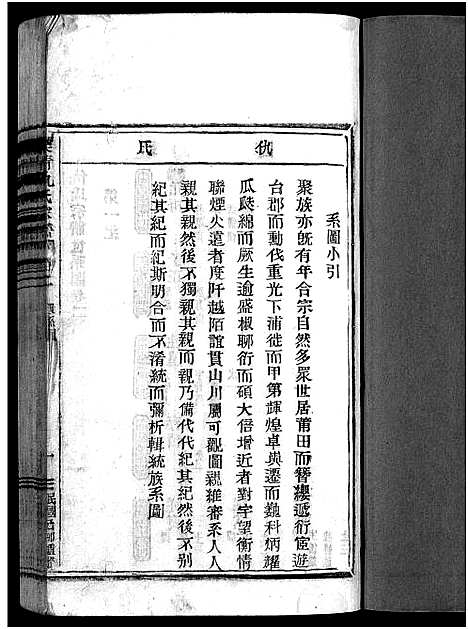 仇氏
系圖小引
聚族亦旣有年合宗自然多眾世居莆田而簪纓遞衍宦遊
台郡而勳伐重光下浦徙而甲第輝煌卓與遷而巍科炳耀
瓜瓞綿而厥生逾盛椒聊衍而碩大倍增近者對宇望衡情
聯煙火遠者度阡越陌誼貫山川屬可觀圖親維審系人人
親其親然後不獨親其親而親乃備代代紀其紀然後不别
紀其紀而紀斯明合而不淆統而彌析輯統族系圖